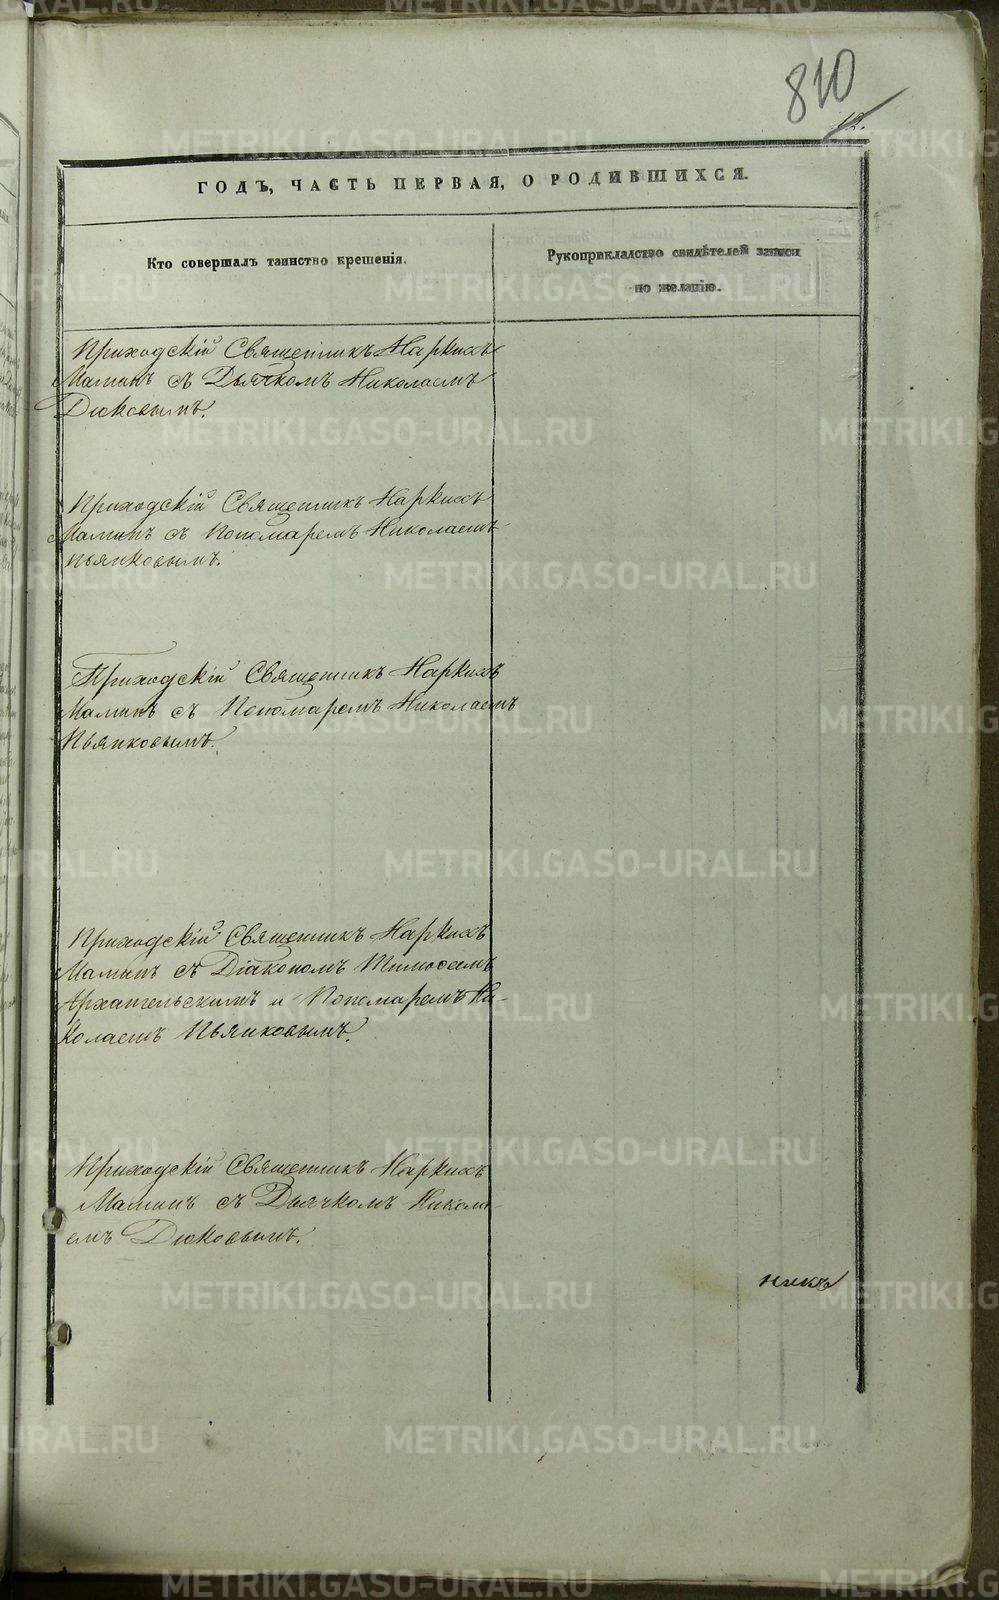 810
12.
ГОДЪ, ЧАСТЬ ПЕРВАЯ, О РОДИВШИХСЯ.
Кто совершалъ таинство крещенія.
Рукоприкладство свидѣтелей записи
по желанію.
Приходскій Священникъ Наркисъ
Маминъ съ Дьячкомъ Николаемъ
Дюковымъ.
Приходскій Священникъ Наркисъ
Маминъ съ Пономаремъ Николаемъ
Пьянковымъ.
Приходскій Священникъ Наркисъ
Маминъ съ Пономаремъ Николаемъ
Пьянковымъ.
Приходскій Священникъ Наркисъ
Маминъ съ Діакономъ Тимофеемъ
Архангельскимъ и Пономаремъ Ни-
колаемъ Пьянковымъ.
Приходскій Священникъ Наркисъ
Маминъ съ Дьячкомъ Никола-
емъ Дюковымъ.
никъ
METRIKI.GASO-URAL.RU